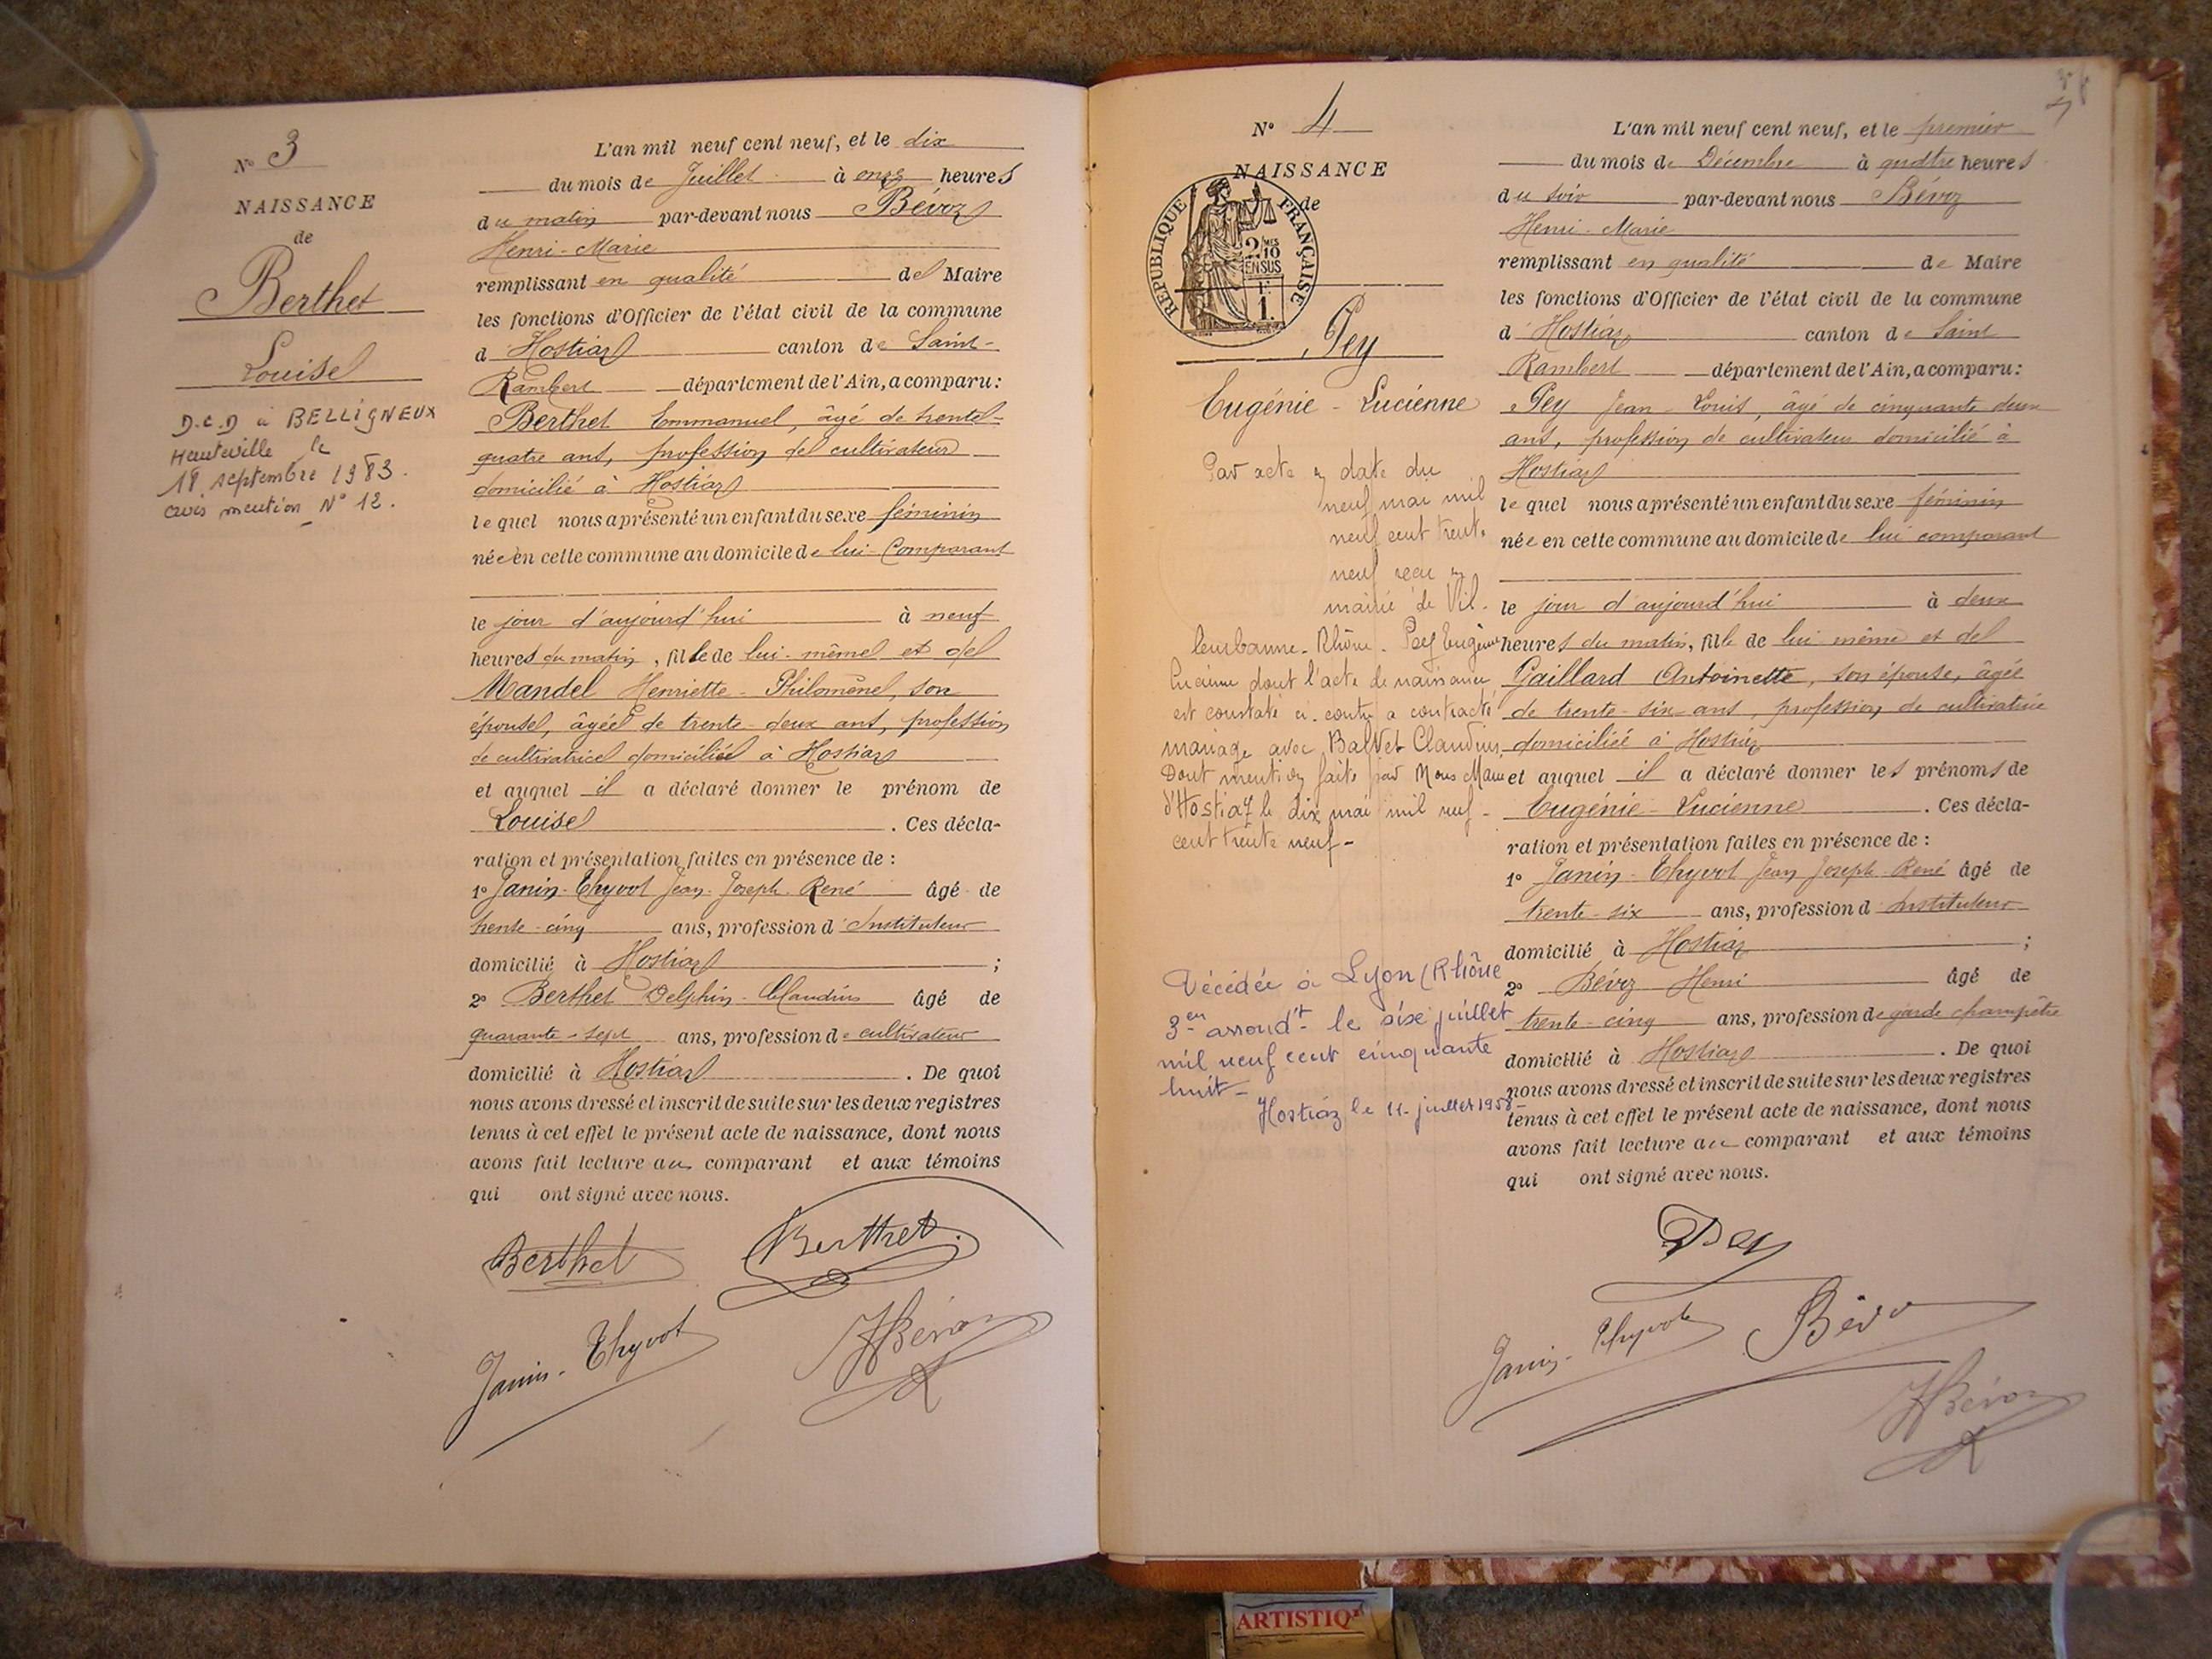 N° 3
NAISSANCE
de
Berthet
Louise
D.C.D à BELLIGNEUX
Hauteville le
18 septembre 1983.
avis mention N° 12.
L'an mil neuf cent neuf, et le dix
du mois de Juillet à onze heures
du matin par-devant nous Bévoz
Henri-Marie
remplissant en qualité de Maire
les fonctions d'Officier de l'état civil de la commune
d'Hostiaz canton de Saint-
Rambert département de l'Ain, a comparu:
Berthet Emmanuel, âgé de trente-
quatre ans, profession de cultivateur
domicilié à Hostiaz
lequel nous a présenté un enfant du sexe féminin
née en cette commune au domicile de lui-Comparant
le jour d'aujourd'hui à neuf
heures du matin, fille de lui-même et de
Mandel Henriette-Philomène, son
épouse, âgée de trente-deux ans, profession
de cultivatrice domiciliée à Hostiaz
et auquel il a déclaré donner le prénom de
Louise. Ces décla-
ration et présentation faites en présence de :
1° Janin-Thyvot Jean-Joseph-René âgé de
trente-cinq ans, profession d'Instituteur
domicilié à Hostiaz ;
2° Berthet Delphin-Claudius âgé de
quarante-sept ans, profession de cultivateur
domicilié à Hostiaz. De quoi
nous avons dressé et inscrit de suite sur les deux registres
tenus à cet effet le présent acte de naissance, dont nous
avons fait lecture au comparant et aux témoins
qui ont signé avec nous.
Berthet Berthet.
Janin-Thyvot HBévoz
N° 4
NAISSANCE
de
REPUBLIQUE FRANÇAISE
2/10mes
EN SUS
1.
Pey
Eugénie-Lucienne
Par acte en date du
neuf mai mil
neuf cent trente
neuf reçu en
mairie de Vil-
leurbanne-Rhône-Pey Eugénie
Lucienne dont l'acte de naissance
est constaté ci-contre a contracté
mariage avec Balvet Claudius
Dont mention faite par Nous Maire
d'Hostiaz le dix mai mil neuf-
cent trente neuf-
Décédée à Lyon (Rhône
3en arrond't le six juillet
mil neuf cent cinquante
huit-
Hostiaz le 11-juillet 1958-
L'an mil neuf cent neuf, et le premier
du mois de Décembre à quatre heures
du soir par-devant nous Bévoz
Henri-Marie
remplissant en qualité de Maire
les fonctions d'Officier de l'état civil de la commune
d'Hostiaz canton de Saint
Rambert département de l'Ain, a comparu:
Pey Jean-Louis, âgé de cinquante deux
ans, profession de cultivateur domicilié à
Hostiaz
lequel nous a présenté un enfant du sexe féminin
née en cette commune au domicile de lui comparant
le jour d'aujourd'hui à deux
heures du matin, fille de lui même et de
Gaillard Antoinette, son épouse, âgée
de trente-six ans, profession de cultivatrice
domiciliée à Hostiaz
et auquel il a déclaré donner les prénoms de
Eugénie-Lucienne. Ces décla-
ration et présentation faites en présence de :
1° Janin-Thyvot Jean Joseph-René âgé de
trente-six ans, profession d'Instituteur
domicilié à Hostiaz ;
2° Bévoz Henri âgé de
trente-cinq ans, profession de garde champêtre
domicilié à Hostiaz. De quoi
nous avons dressé et inscrit de suite sur les deux registres
tenus à cet effet le présent acte de naissance, dont nous
avons fait lecture au comparant et aux témoins
qui ont signé avec nous.
Pey
Janin-Thyvot Bévo
HBévoz
ARTISTIQ